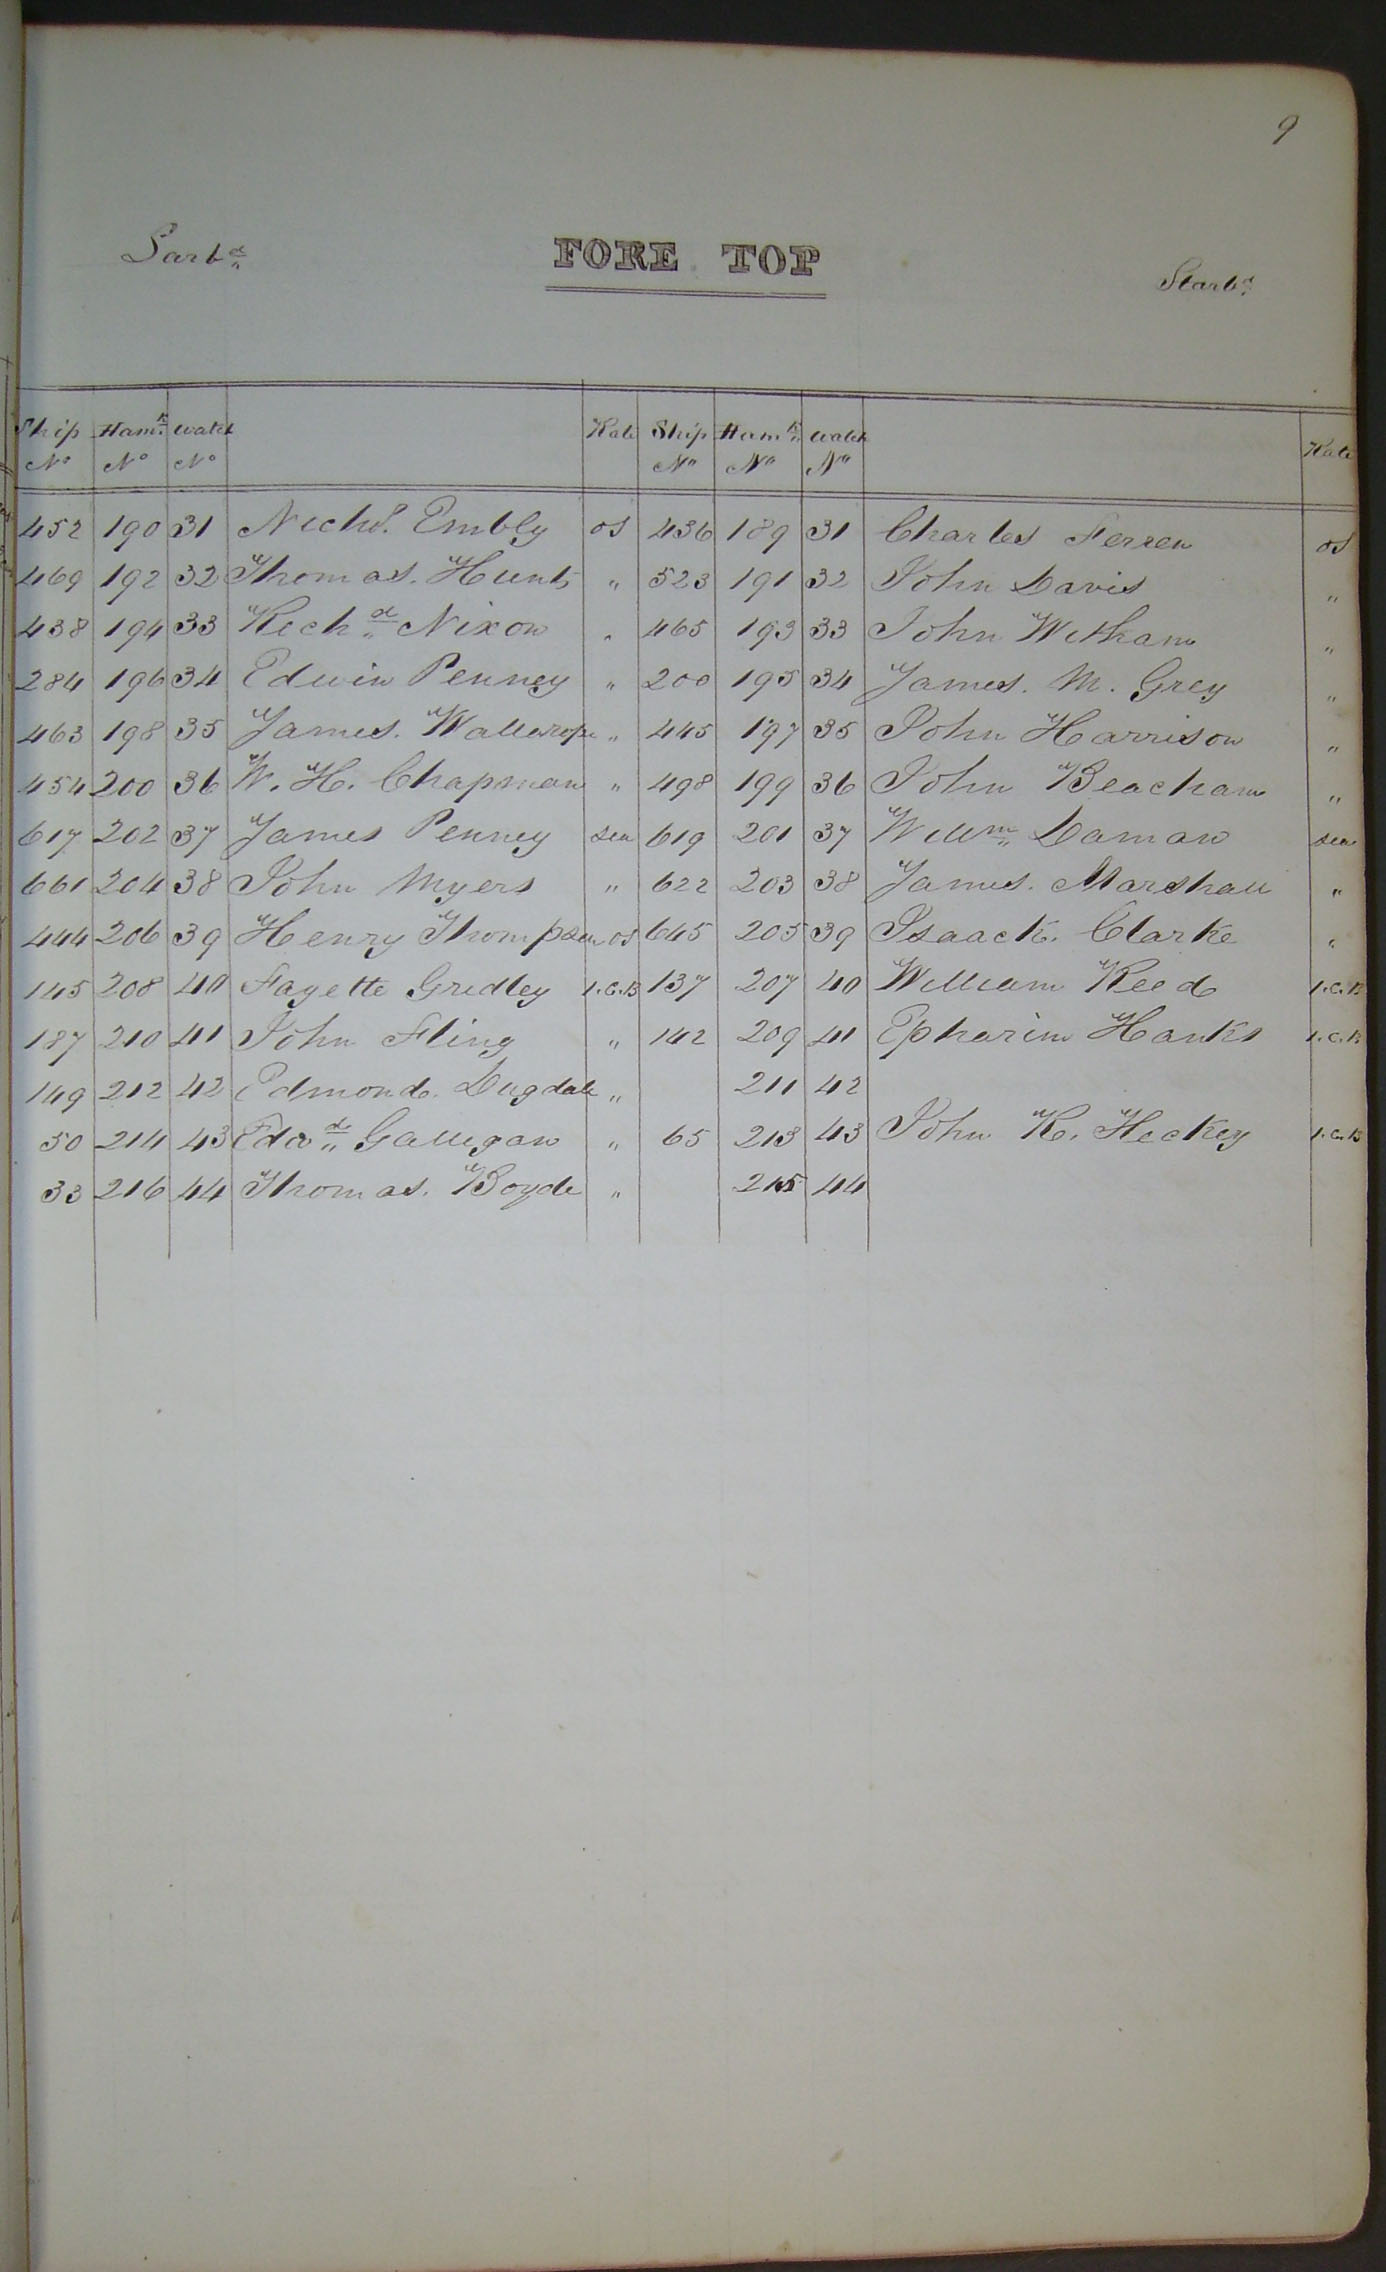 9
Larbd FORE TOP Starbd
Ship No Hamk No Watch No Rate Ship No Hamk No Watch No Rate
452 190 31 Nichs. Embly os 436 189 31 Charles Ferren os
469 192 32 Thomas. Hunt " 523 191 32 John Davis "
438 194 33 Richd Nixon " 465 193 33 John Witham "
284 196 34 Edwin Penney " 200 195 34 James. M. Grey "
463 198 35 James. " 445 197 35 John Harrison "
454 200 36 W. H. Chapman " 498 199 36 John Beacham "
617 202 37 James Penney sea 619 201 37 Willm Daman sea
661 204 38 John Myers " 622 203 38 James. Marshall "
444 206 39 Henry Thompson os 645 205 39 Isaack. Clarke "
145 208 40 Fayette Gridley 1.C.B 137 207 40 William Reed 1.C.B
187 210 41 John Fling " 142 209 41 Epharim Hanks 1.C.B
149 212 42 Edmond. Dugdale " 211 42
50 214 43 Edwd Galligan " 65 213 43 John K. Heckey 1.C.B
33 216 44 Thomas. Boyde " 215 44